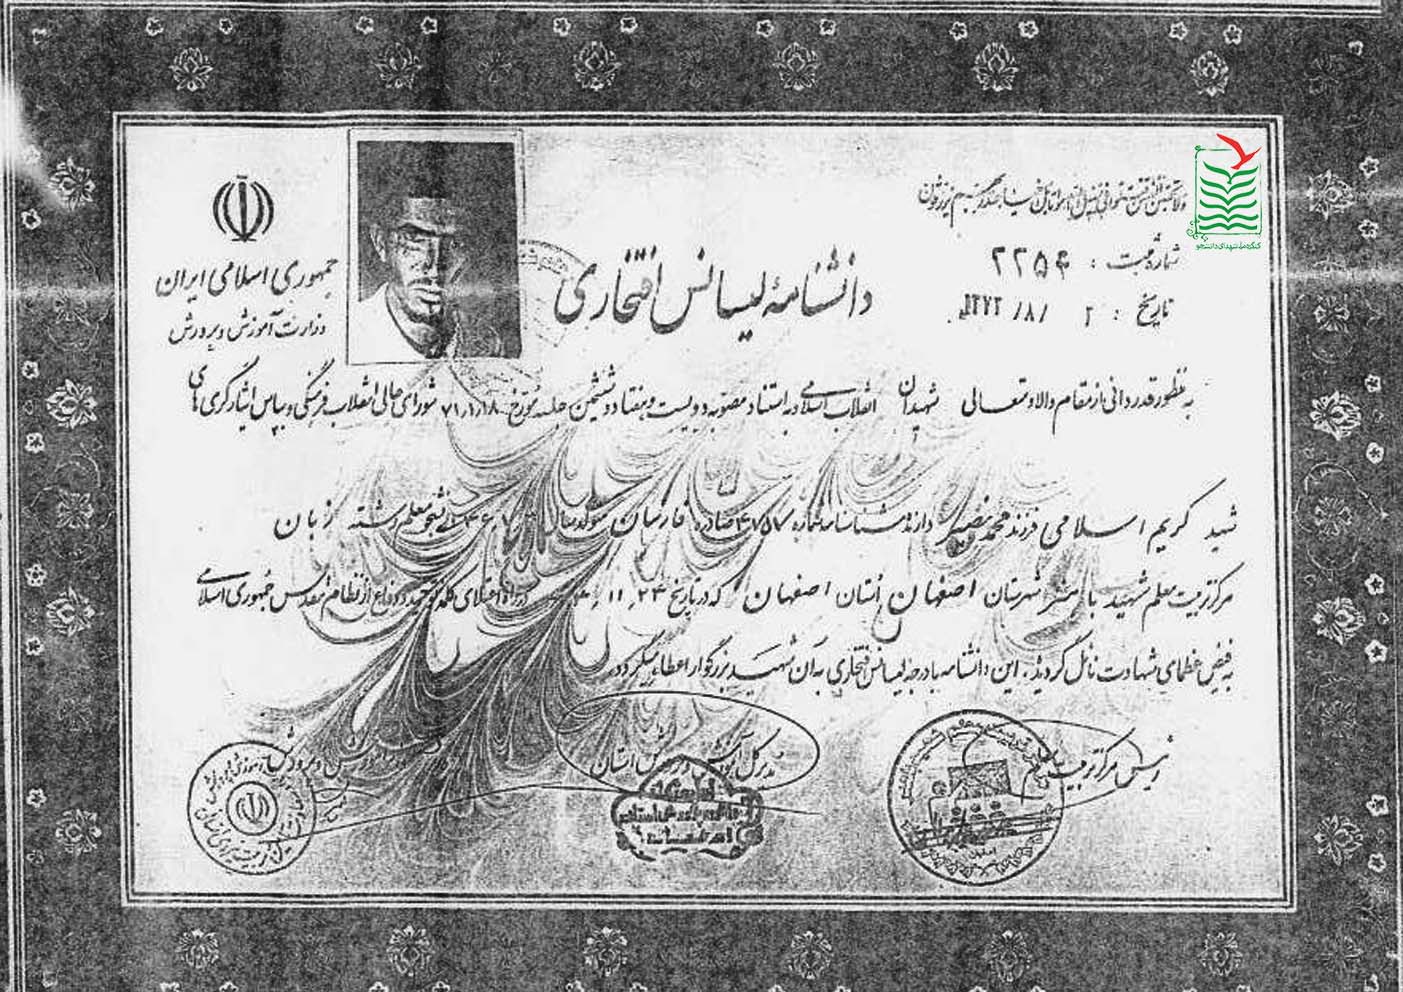 ولا تحسبن الذین قتلوا فی سبیل الله امواتا بل احیاء عند ربهم یرزقون
کنگره ملی شهدای دانشجو
شماره ثبت : ۲۲۵۴
تاریخ : ۲ /۸/ ۱۳۷۲
جمهوری اسلامی ایران
وزارت آموزش و پرورش
دانشنامهٔ لیسانس افتخاری
به منظور قدردانی از مقام والا و متعالی شهیدان انقلاب اسلامی و به استناد مصوبه دویست و هفتاد و ششمین جلسه مورخ ۷۱،۱،۱۸ شورای عالی انقلاب فرهنگی و بپاس ایثارگری های
شهید کریم اسلامی فرزند محمد نصیر دارنده شناسنامه شماره ۴۷۵۷ صادره فارسان متولد سال دانشجو معلم رشته زبان
مرکز تربیت معلم شهید باهنر شهرستان اصفهان استان اصفهان که در تاریخ ۲۴، ۱۱، در راه اعتلای کلمه توحید و دفاع از نظام مقدس جمهوری اسلامی
به فیض عظمای شهادت نائل گردید. این دانشنامه با درجه لیسانس افتخاری به آن شهید بزرگوار اعطاء میگردد.
رئیس مرکز تربیت معلم
مدیر کل آموزش و پرورش استان